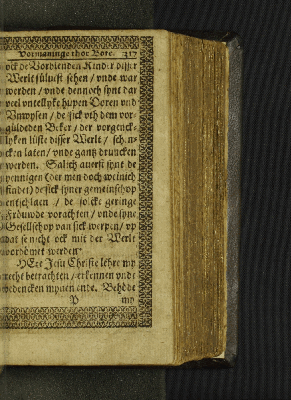 Vormaninge thor Bote. 217
ock de Vordenden Kinder disser
Werlt süluest sehen / vnde war
worden / vnde dennoch synt dar
veel vntellyke hupen Doren vnd
Vnwysen / de sick vth dem vor-
güldeden Beker / der vorgenck-
lyken lüste disser Werlt / schen-
cken laten / vnde gantz druncken
werden. Salich auerst synt de
yennigen (der men doch weinich
findet) de sick syner gemeinschop
entschlaen / de solcke geringe
Fröuwde vorachten / vnde syne
Gesellschop van sick werpen / vp
dat se nicht ock mit der Werlt
vordömet werden.
HErr Jesu Christe lehre my
recht betrachten / erkennen vnde
bedencken mynen ende. Behöde
P my